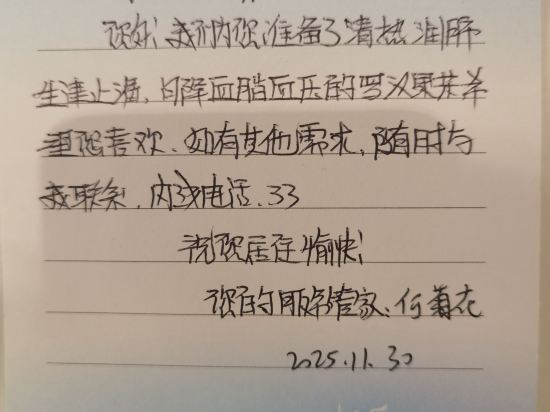 您好！我们为您准备了清热润肺
生津止渴、降血脂血压的罗汉果茶希
望您喜欢、如有其他需求，随时与
我联系，内线电话、33
祝您居住愉快！
您的服务管家：何菊花
2025.11.30